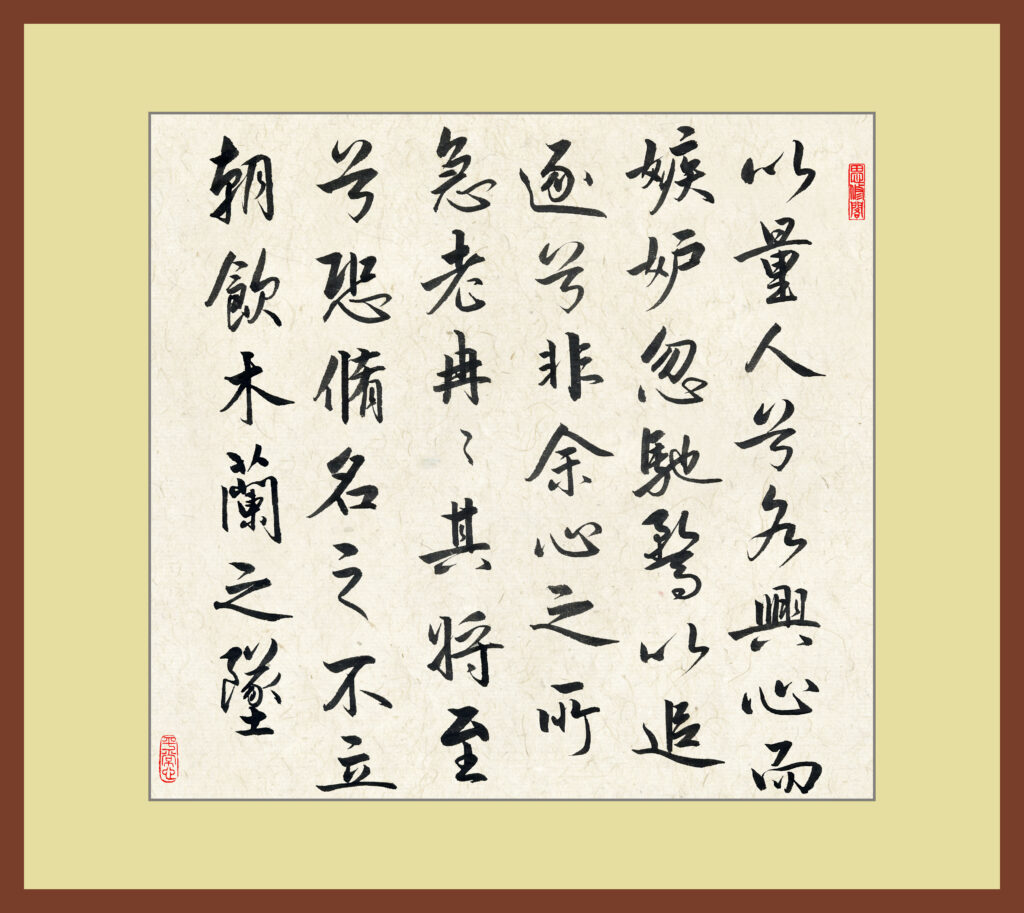 以量人兮各興心而
嫉妒忽馳騖以追
逐兮非余心之所
急老冉〻其將至
兮恐脩名之不立
朝飲木蘭之墜
思修閣
平常心